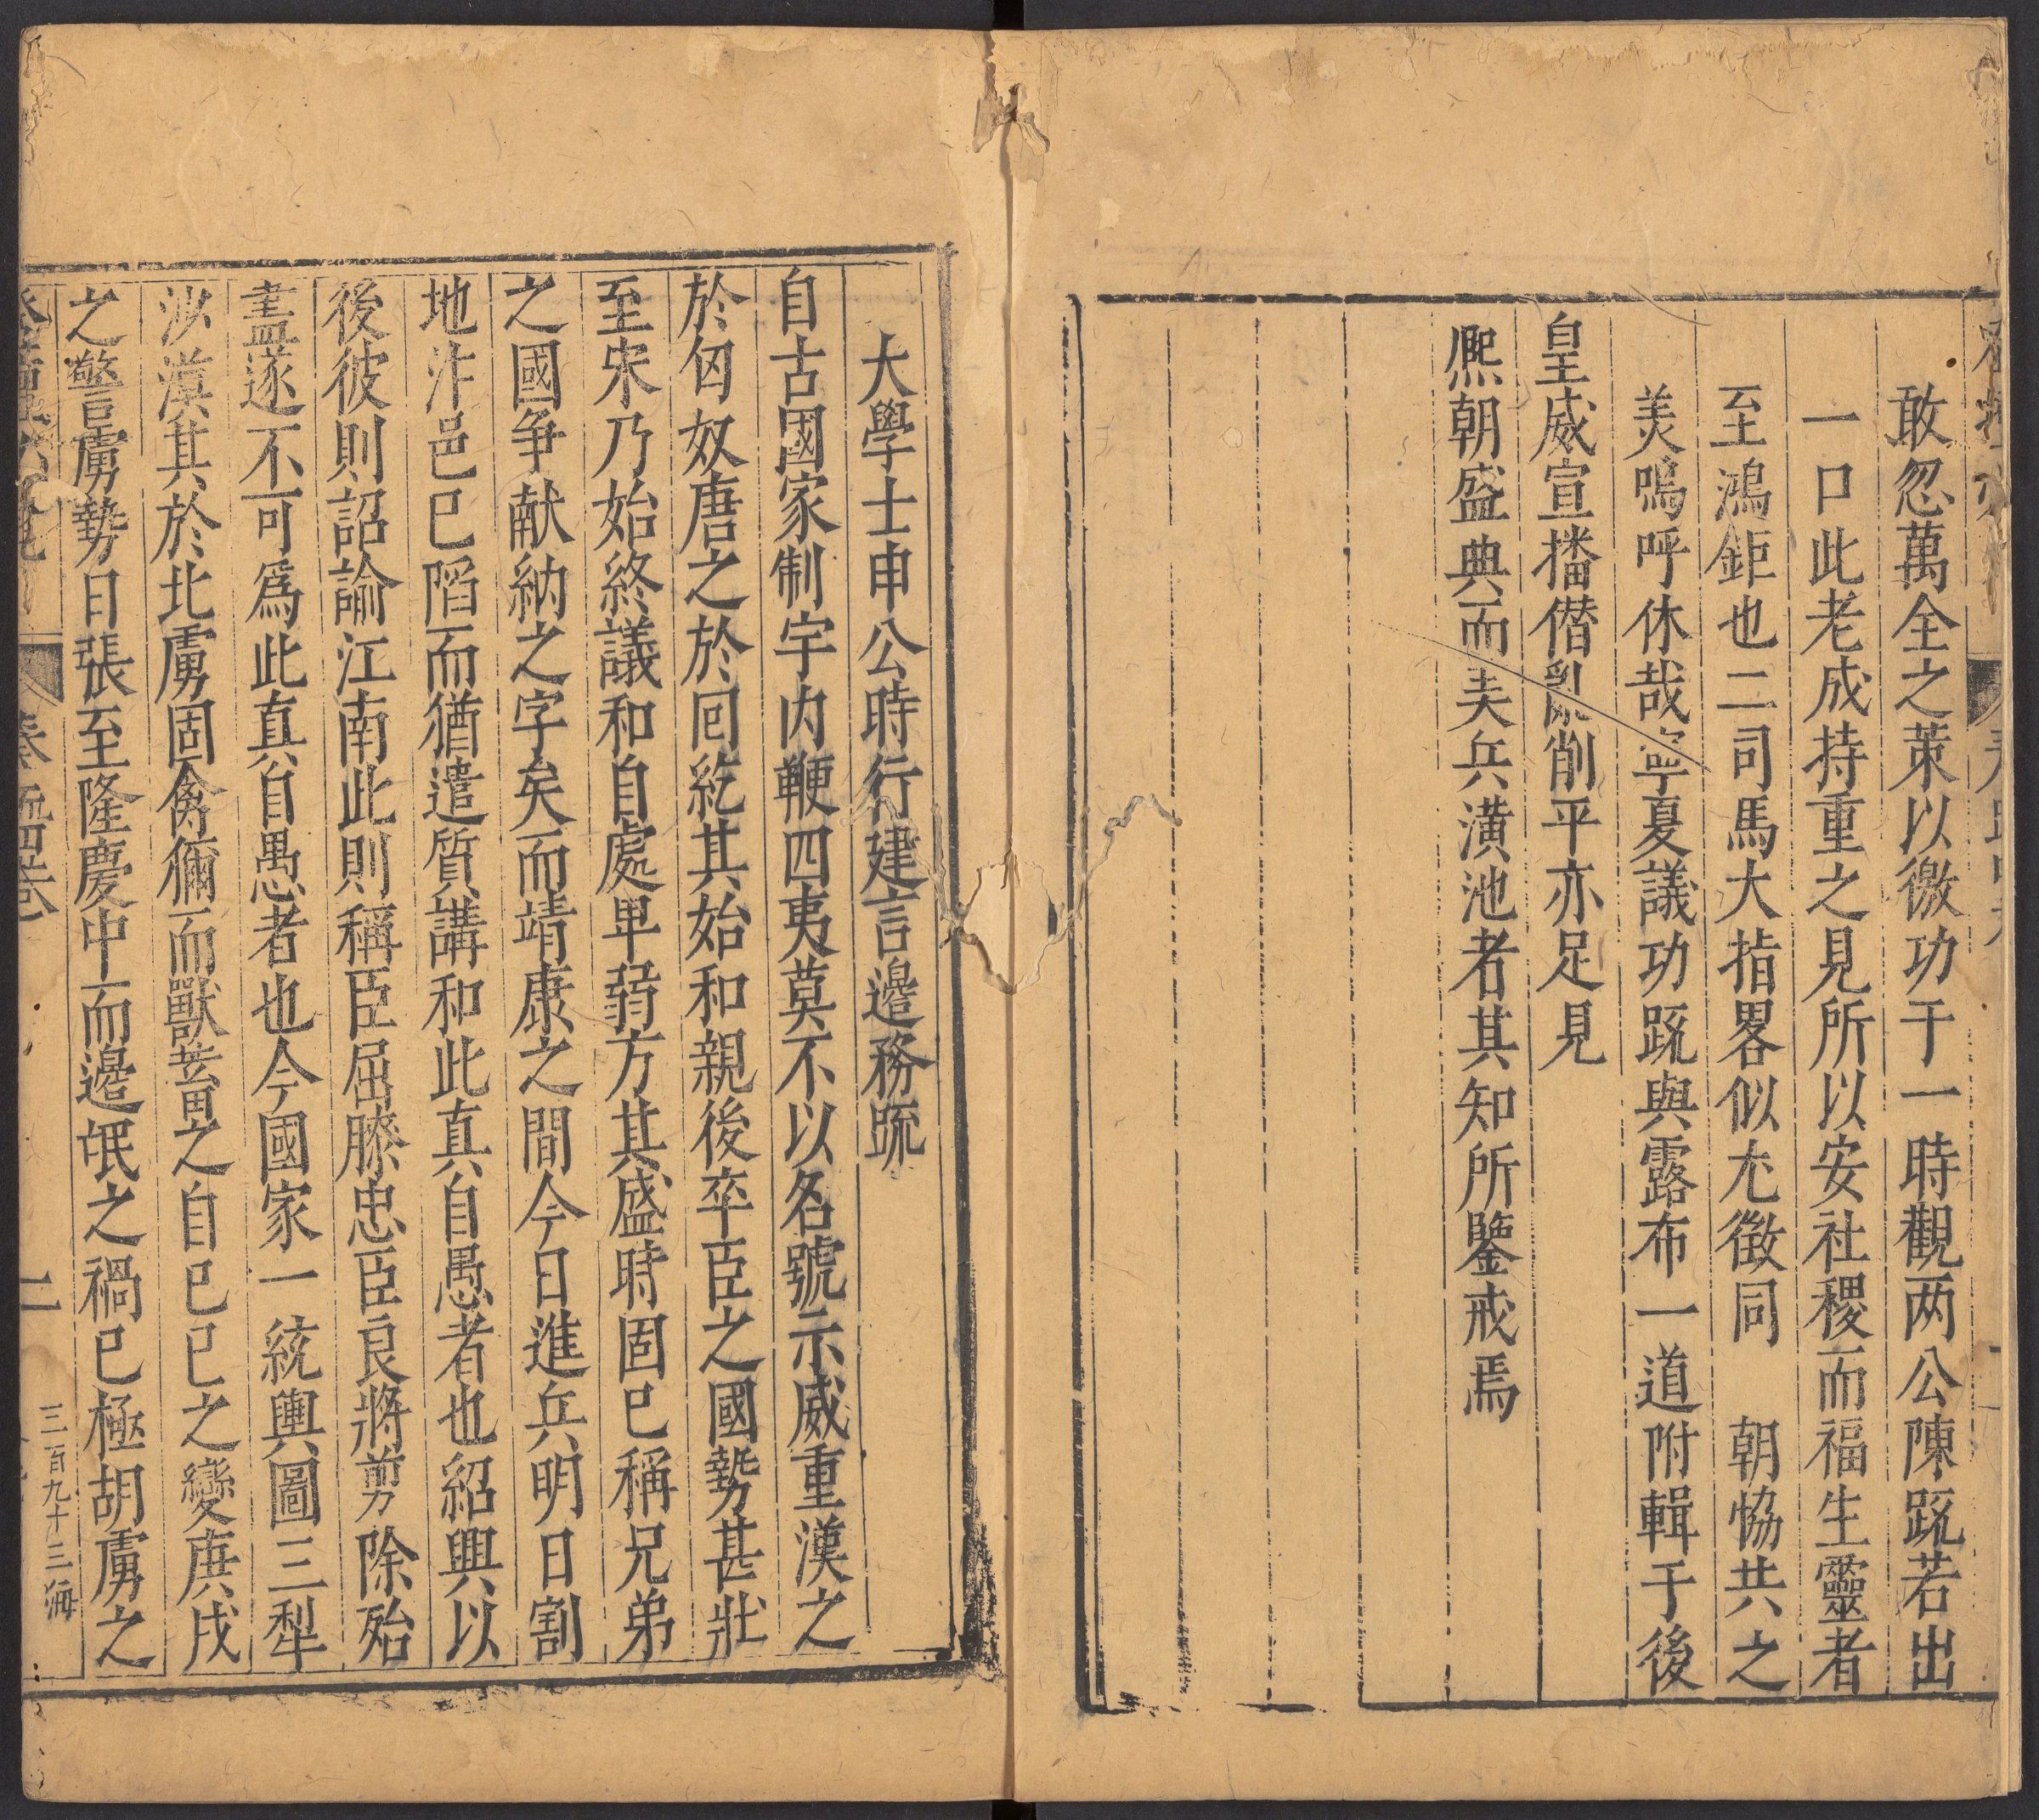 敢忽萬全之策以徼功于一時觀两公陳䟽若出
一口此老成持重之見所以安社稷而福生靈者
至鴻鉅也二司馬大指畧似尤徵同　朝恊共之
美嗚呼休哉寧夏議功䟽與露布一道附輯于後
皇威宣播僭亂削平亦足見
熈朝盛典而美兵潢池者其知所鑒戒焉
大學士申公時行建言邊務疏
自古國家制宇内鞭四夷莫不以名號示威重漢之
於匈奴唐之於回紇其始和親後卒臣之國勢甚壯
至宋乃始終議和自處卑弱方其盛時固已稱兄弟
之國爭献納之字矣而靖康之間今日進兵明日割
地汴邑已陷而猶遣質講和此真自愚者也紹興以
後彼則詔諭江南此則稱臣屈膝忠臣良將剪除殆
盡遂不可爲此真自愚者也今國家一統輿圖三犁
沙漠其於北虜固禽獮而獸畜之自己巳之變庚戌
之警虜勢日張至隆慶中而邊氓之禍已極胡虜之
二
三百九十三海